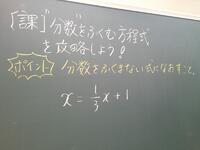 「課」分数をふくむ方程式
を攻略しよう!
ポイント 分数をふくまない式になおすこと。
x = 1/3 x + 1